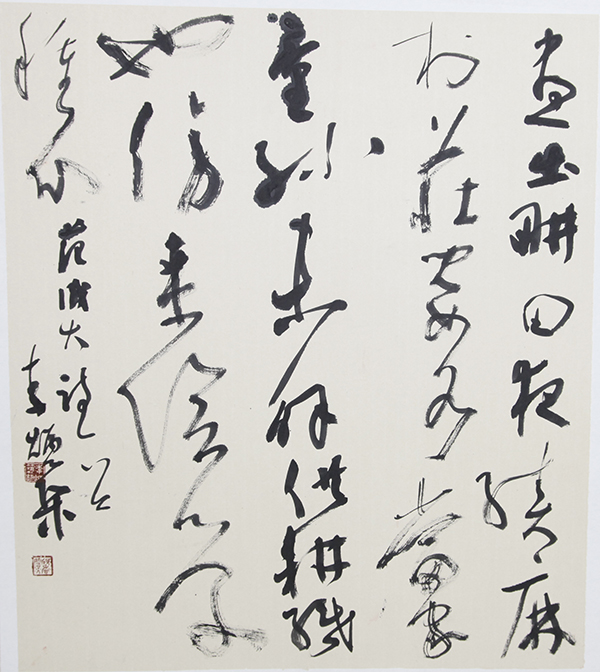 昼出畊田夜績麻
村莊兒女各當家
童孫未解供耕織
也傍桑陰學
種瓜 范成大詩
李